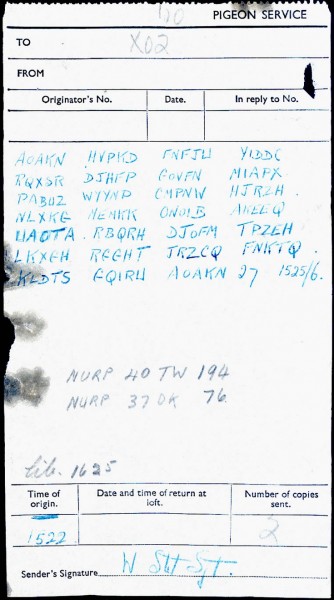 PIGEON SERVICE
TO X02
FROM
Originator's No. Date. In reply to No.
AOAKN HVPKD FNFJU YIDDC
RQXSR DJHFP GOVFN MIAPX
PABUZ WYYNP CMPNW HJRZH
NLXKG MEMKK ONOIB AKEEQ
UAOTA RBQRH DJOFM TPZEH
LKXGH RGGHT JRZCQ FNKTQ
KLDTS GQIRU AOAKN 27 1525/6.
NURP 40 TW 194
NURP 37 DK 76.
lib. 1625
Time of origin. Date and time of return at loft. Number of copies sent.
1522 2
Sender's Signature W Stot Sjt.